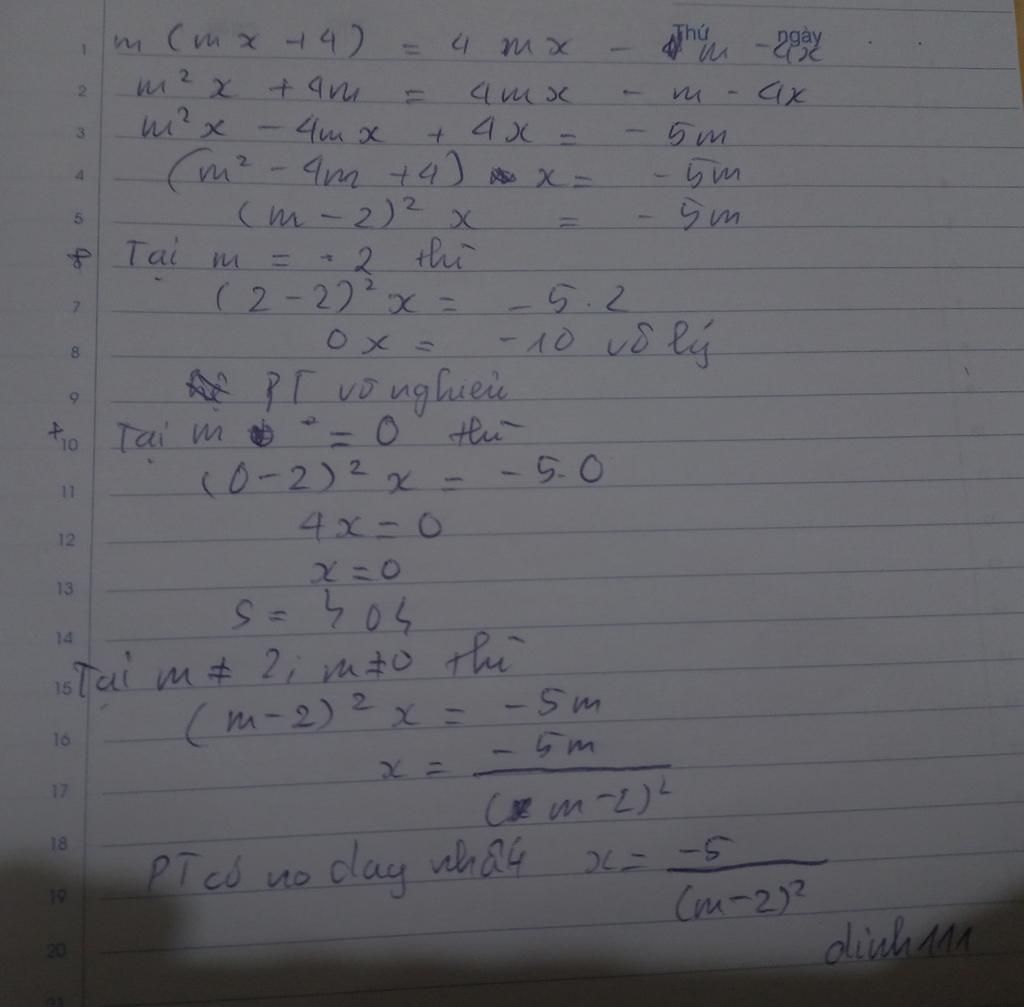 Thứ ngày
1 m(mx + 4) = 4mx - m - 4x
2 m²x + 4m = 4mx - m - 4x
3 m²x - 4mx + 4x = - 5m
4 (m² - 4m + 4) x = - 5m
5 (m - 2)² x = - 5m
Tại m = - 2 thì
7 (2 - 2)² x = - 5.2
8 0x = - 10 vô lý
9 PT vô nghiêm
+ 10 Tại m = 0 thì
11 (0 - 2)² x = - 5.0
12 4x = 0
13 x = 0
14 S = {0}
15 Tại m ≠ 2; m ≠ 0 thì
16 (m - 2)² x = - 5m
17 x = \frac{-5m}{(m-2)²}
18
19 PT có no duy nhất x = \frac{-5}{(m-2)²}
20 dinh111
21